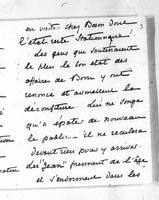 en visite chez Boson Done
l'état reste Stationnaire!
des gens qui soutenaient
le plus le bon état des
affaires de Boson y ont
renoncé et admettent la
déconfiture. Lui ne songe
qu'à épater de nouveau
le public... il ne reculera
devant rien pour y arriver.
les "Jean" prennent de l'âge
et s'endorment dans les